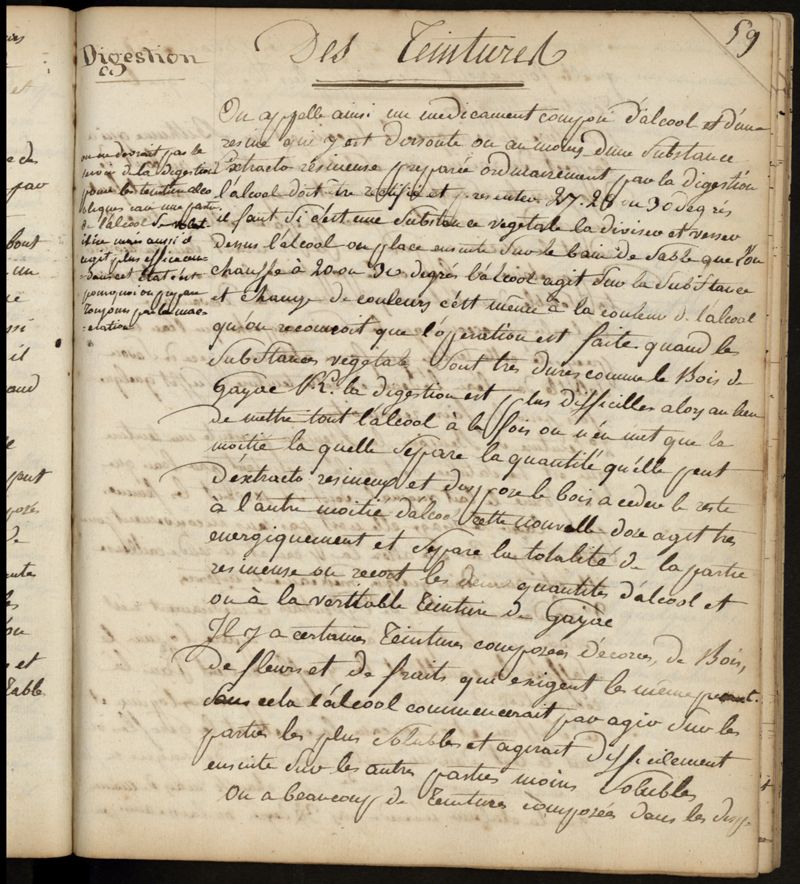 59
Des Teintures
Digestion
On appelle ainsi un medicament composé d'alcool et d'une
resine qui y est dissoute ou au moins d'une substance
Extracto résineuse preparée ordinairement par la Digestion
l'alcool doit etre rectifié et presenter 27. 28 ou 30 degrés
il faut si c'est une substance vegetale la diviser et verser
dessus l'alcool on place ensuite sur le bain de sable que l'on
chauffe à 20 ou 30 degrés l'alcool agit sur la substance
et change de couleurs c'est même à la couleur de l'alcool
qu'on reconnoit que l'opération est faite quand les
substances vegetale sont tres dures comme le Bois de
Gayac la digestion est plus difficilles alors au lieu
de mettre tout l'alcool à la fois on n'en met que la
moitié la quelle separe la quantité qu'elle peut
d'extracto resineux et dispose le bois a ceder le reste
à l'autre moitié d'alcool cette nouvelle dose agit tres
energiquement et separe la totalité de la partie
resineuse on reunit les deux quantités d'alcool et
on à la veritable Teinture de Gayac
Il y a certaines Teintures composées d'écorces, de Bois,
de fleurs et de fruits qui exigent les même
sans cela l'alcool commencerait par agir sur les
parties les plus solubles et agirait difficilement
ensuite sur les autres parties moins solubles
On a beaucoup de Teintures composées dans les disp
on ne devroit pas se
servir de la digestion
pour les teintures alco
oliques car une partie
de l'alcool se volat
ilise mais aussi il
agit plus efficacem
dans cet état c'est
pourquoi on prepare
toujours par la mac
eration